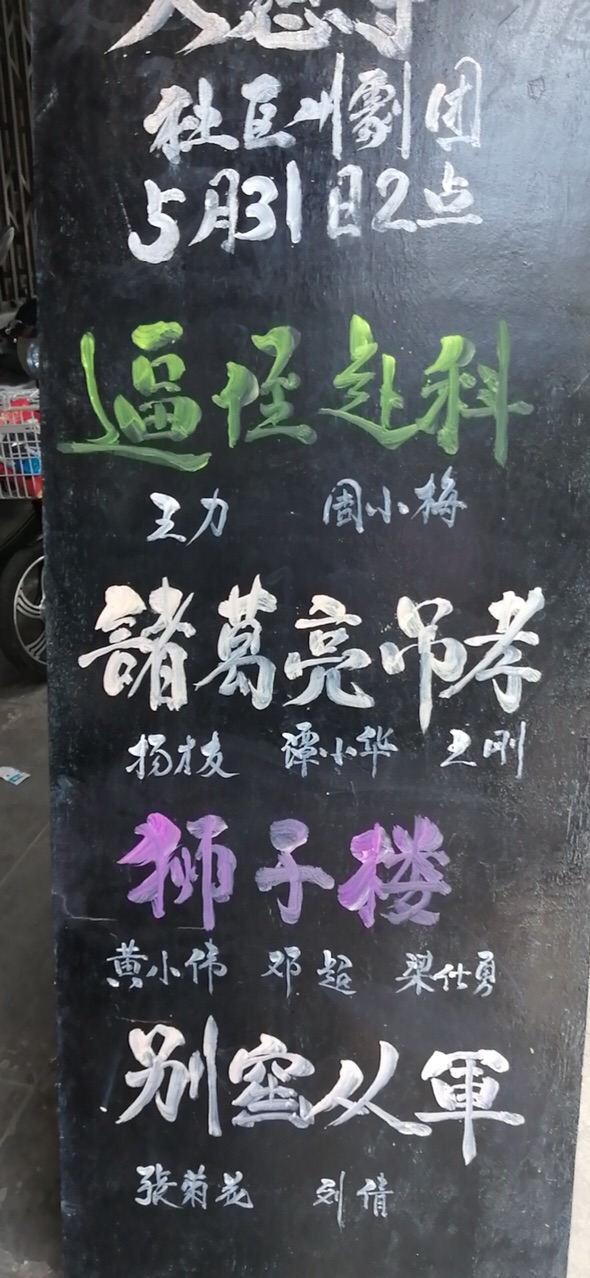 社区川劇团
5月31日2点
逼侄赴科
王力 周小梅
諸葛亮吊孝
杨才友 谭小华 王刚
狮子楼
黄小伟 邓超 梁仕勇
别窑从軍
張菊花 刘倩